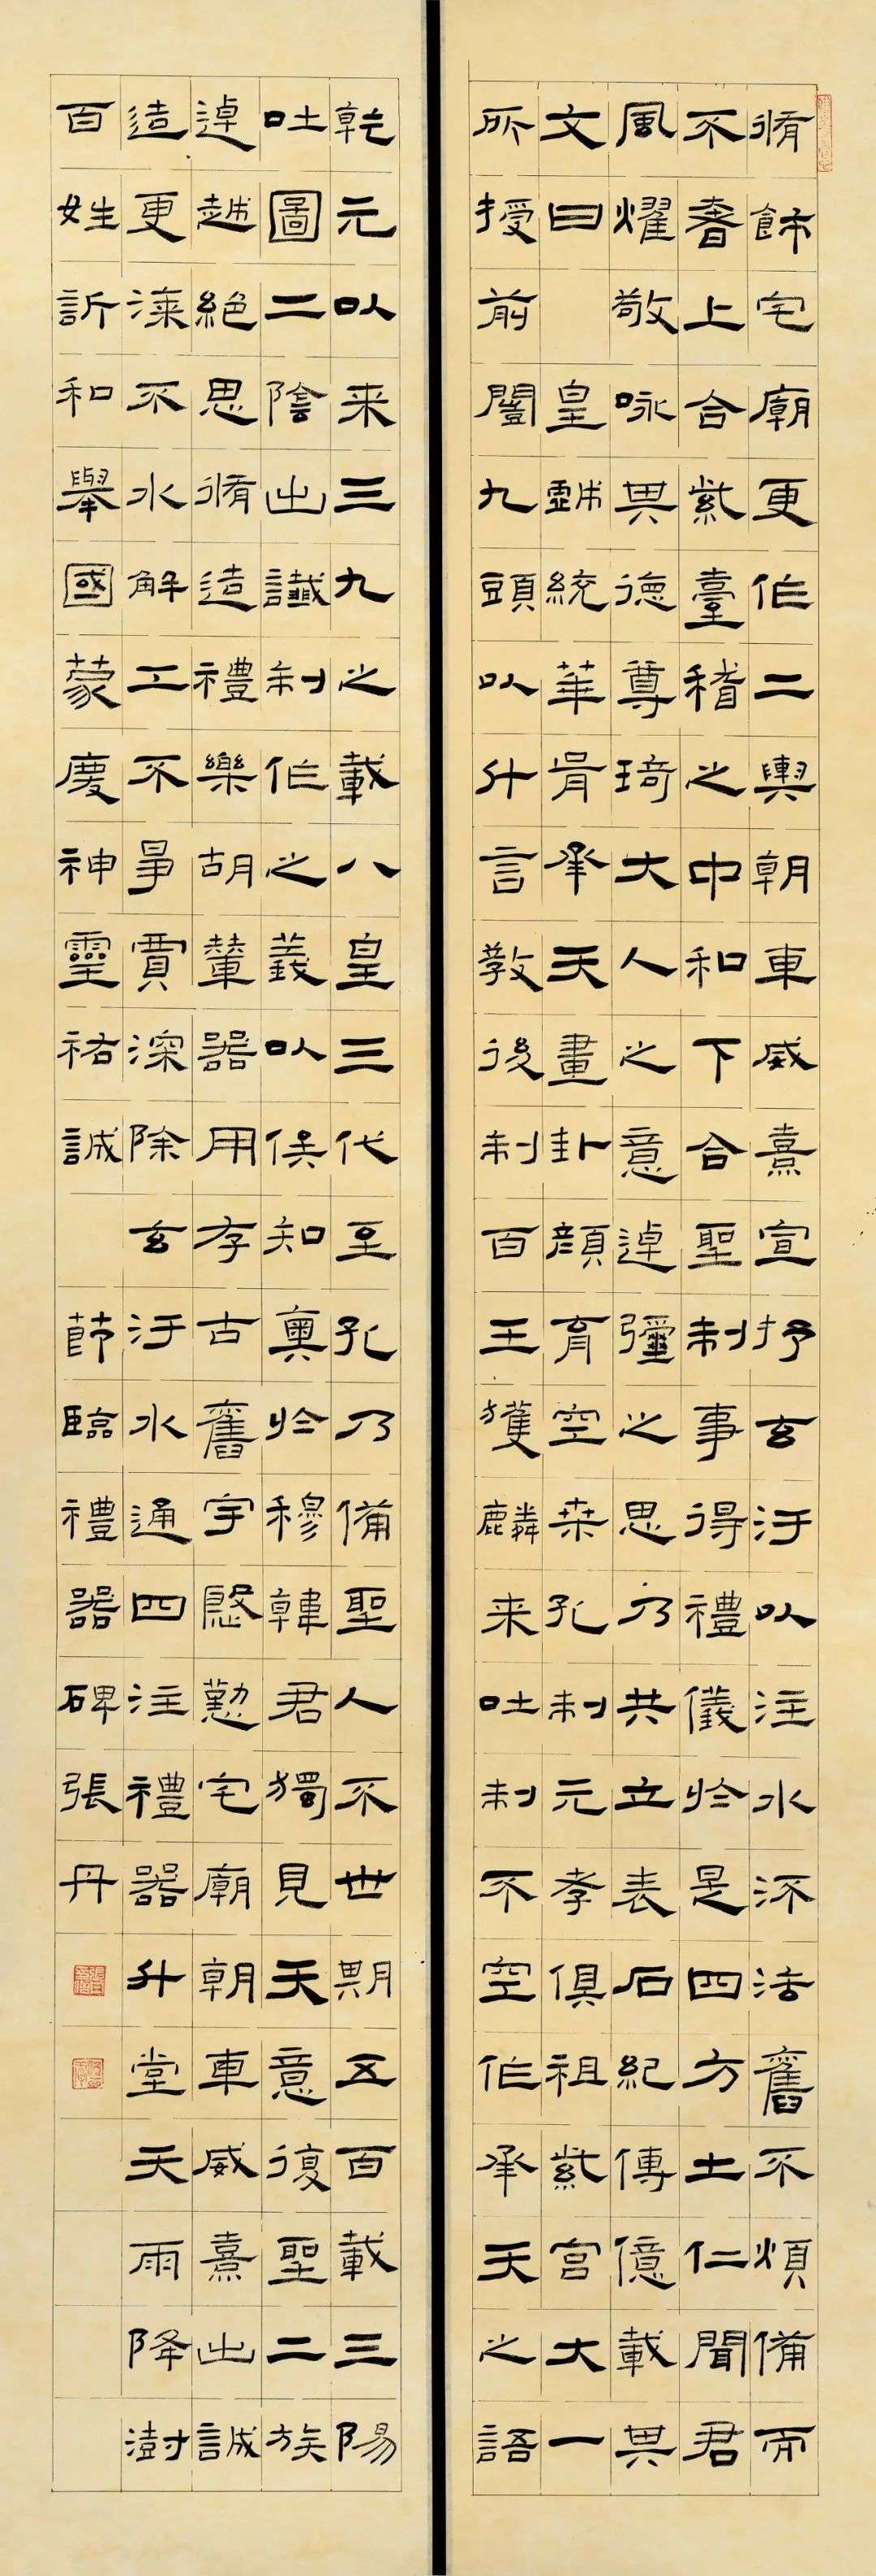 脩飾宅廟更作二輿朝車威熹宣抒玄汙以注水流法舊不煩備而
不奢上合紫臺稽之中和下合聖制事得禮儀於是四方士仁聞君
風燿敬咏其德尊琦大人之意逴彌之思乃共立表石紀傳億載其
文曰 皇戲統華胥承天畫卦顏育空桑孔制元孝俱祖紫宮大一
所授前闓九頭以升言教後制百王獲麟来吐制不空作承天之語
乾元以来三九之載八皇三代至孔乃備聖人不世期五百載三陽
吐圖二陰出讖制作之義以俟知奧於穆韓君獨見天意復聖二族
逴越絕思脩造禮樂胡輦器用存古舊宇慇懃宅廟朝車威熹出誠
造更漆不水解工不爭賈深除玄汙水通四注禮器升堂天雨降澍
百姓訢和舉國蒙慶神靈祐誠 節臨禮器碑張丹